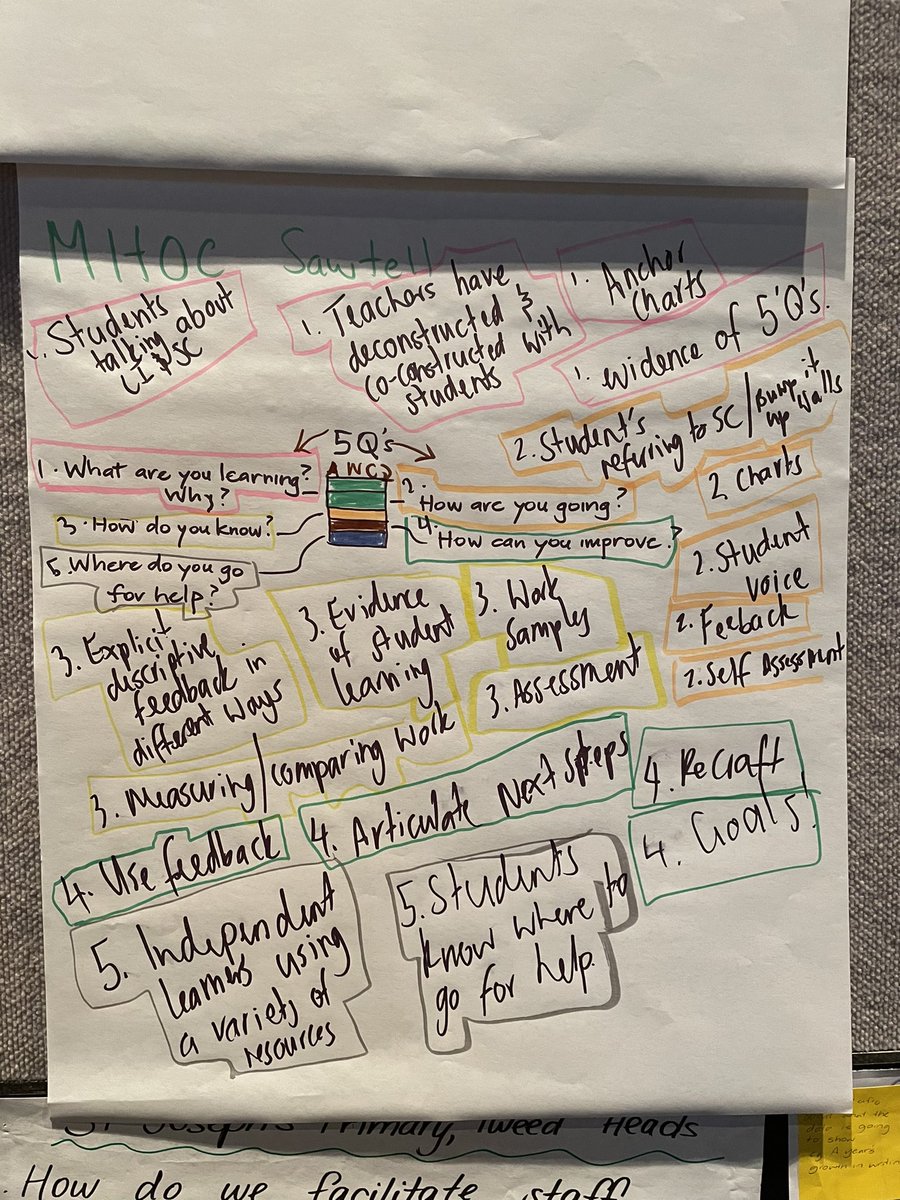 MHOC Sawtell
1. Students
talking about
LI & SC
1. Teachers have
deconstructed &
co-constructed with
students
1. Anchor
Charts
1. evidence of 5'Q's.
2. Student's
refuring to SC / Bump it
up Walls
5Q's
1. What are you learning?
Why?
2.
How are you going?
3. How do you know?
4.
How can you improve?
5. Where do you go
for help?
2. Charts
2. Student
voice
2. Feeback
2. Self Assessment
3. Explicit
descriptive
feedback in
different ways
3. Evidence
of student
learning
3. Work
Samples
3. Assessment
3. Measuring/comparing work
4. Use feedback
4. Articulate Next Steps
4. ReCraft
4. Goals!
5. Independent
learners using
a variety of
resources
5. Students
know where to
go for help.
St Joseph's Primary, Tweed Heads
How do we facilitate staff
the
data is going
to show
eg A years
growth in writing